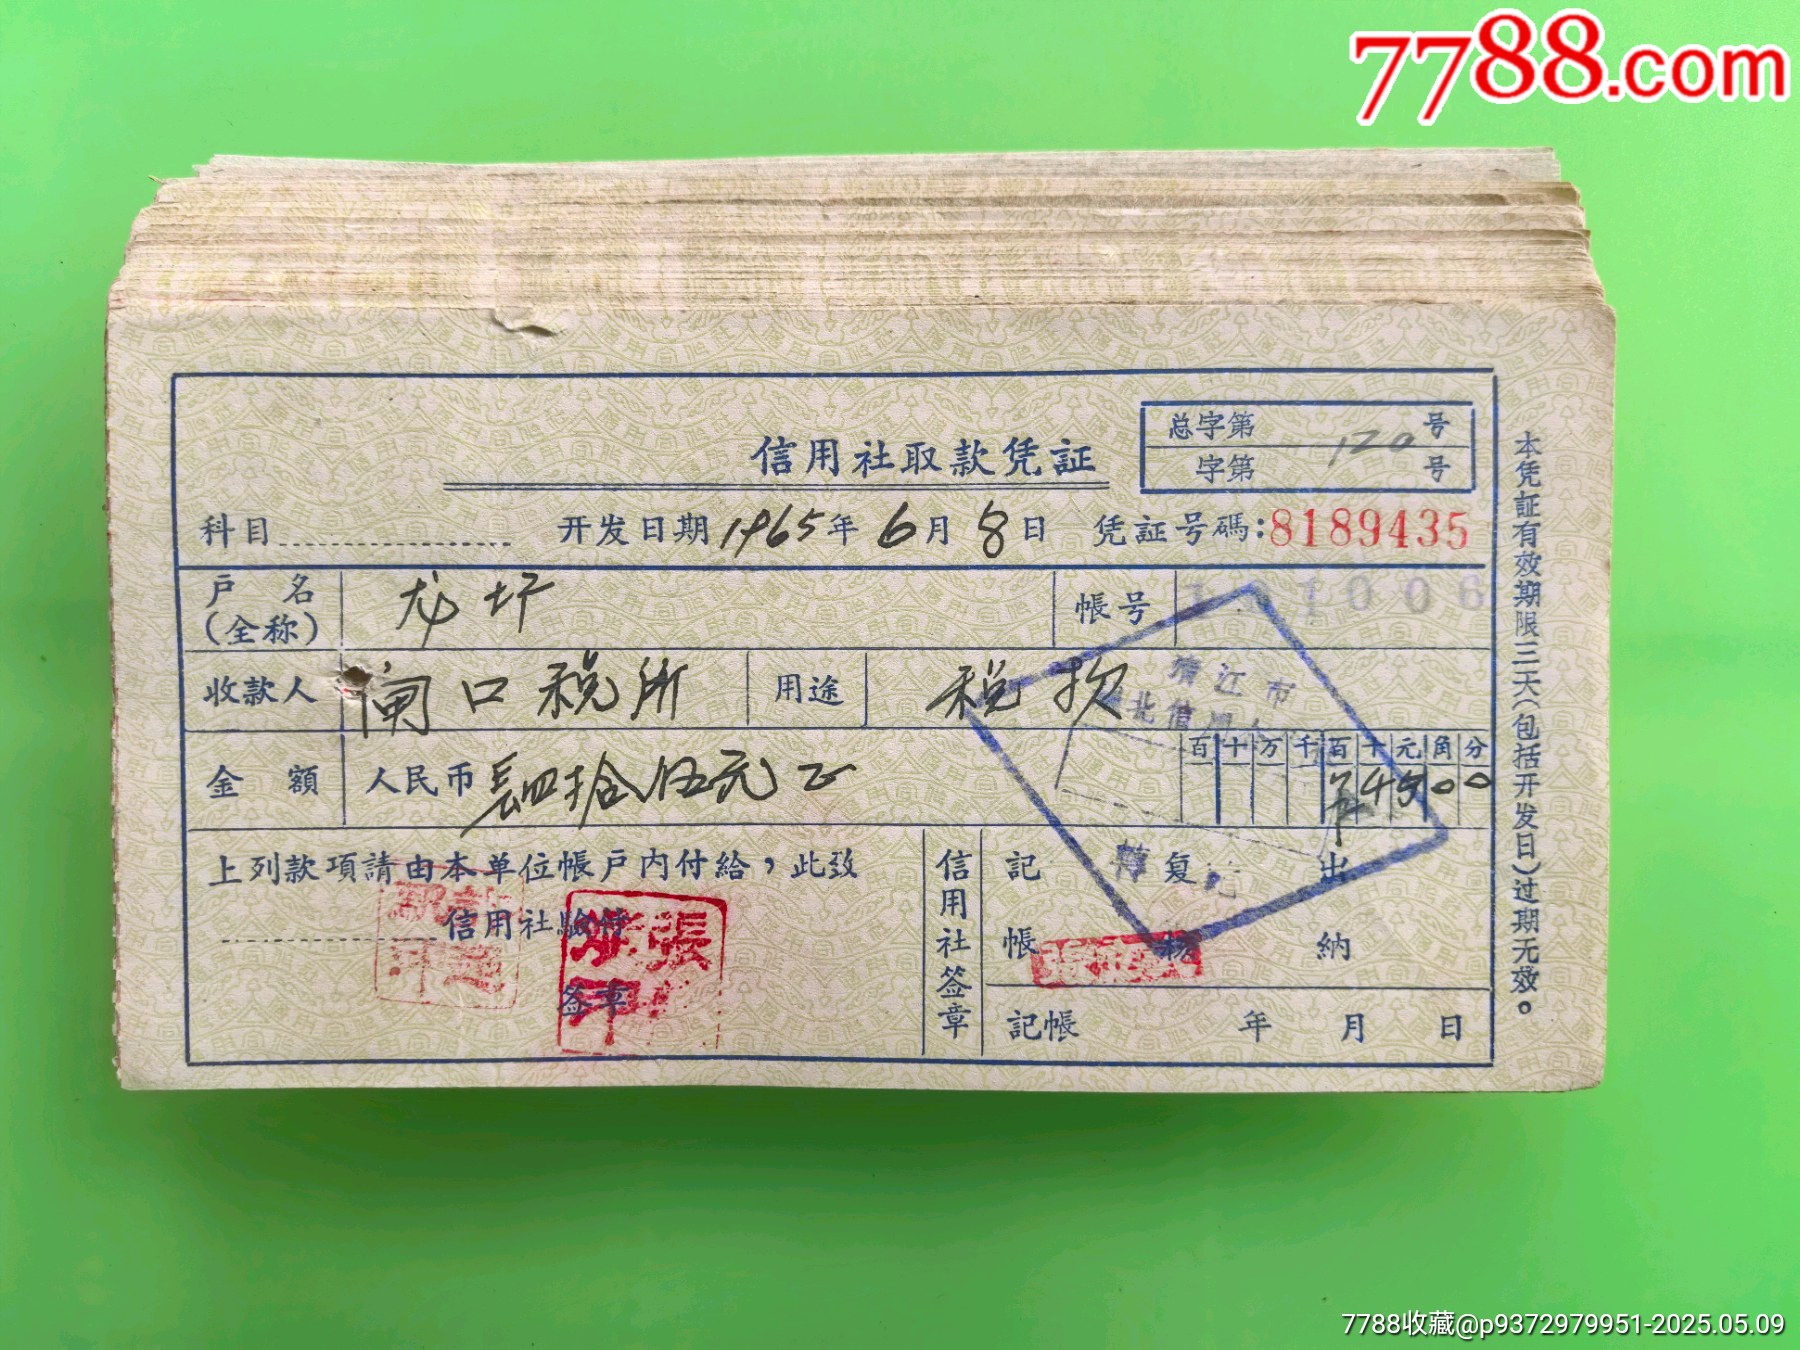 7788.com
总字第 120 号
字第 号
信用社取款凭証
科目 开发日期 1965年 6月 8日 凭証号碼:8189435
户名 龙圩 帳号 101006
(全称)
收款人 闸口税所 用途 税款
百十万千百十元角分
金額 人民币 肆拾伍元正 4500
上列款項請由本单位帳户内付給，此致
信用社驗付
签章
信用社签章
記帳 复核 出納
記帳 年 月 日
清江市
北信用
轉讫
張
印
本凭証有效期限三天(包括开发日)过期无效。
7788收藏@p9372979951-2025.05.09